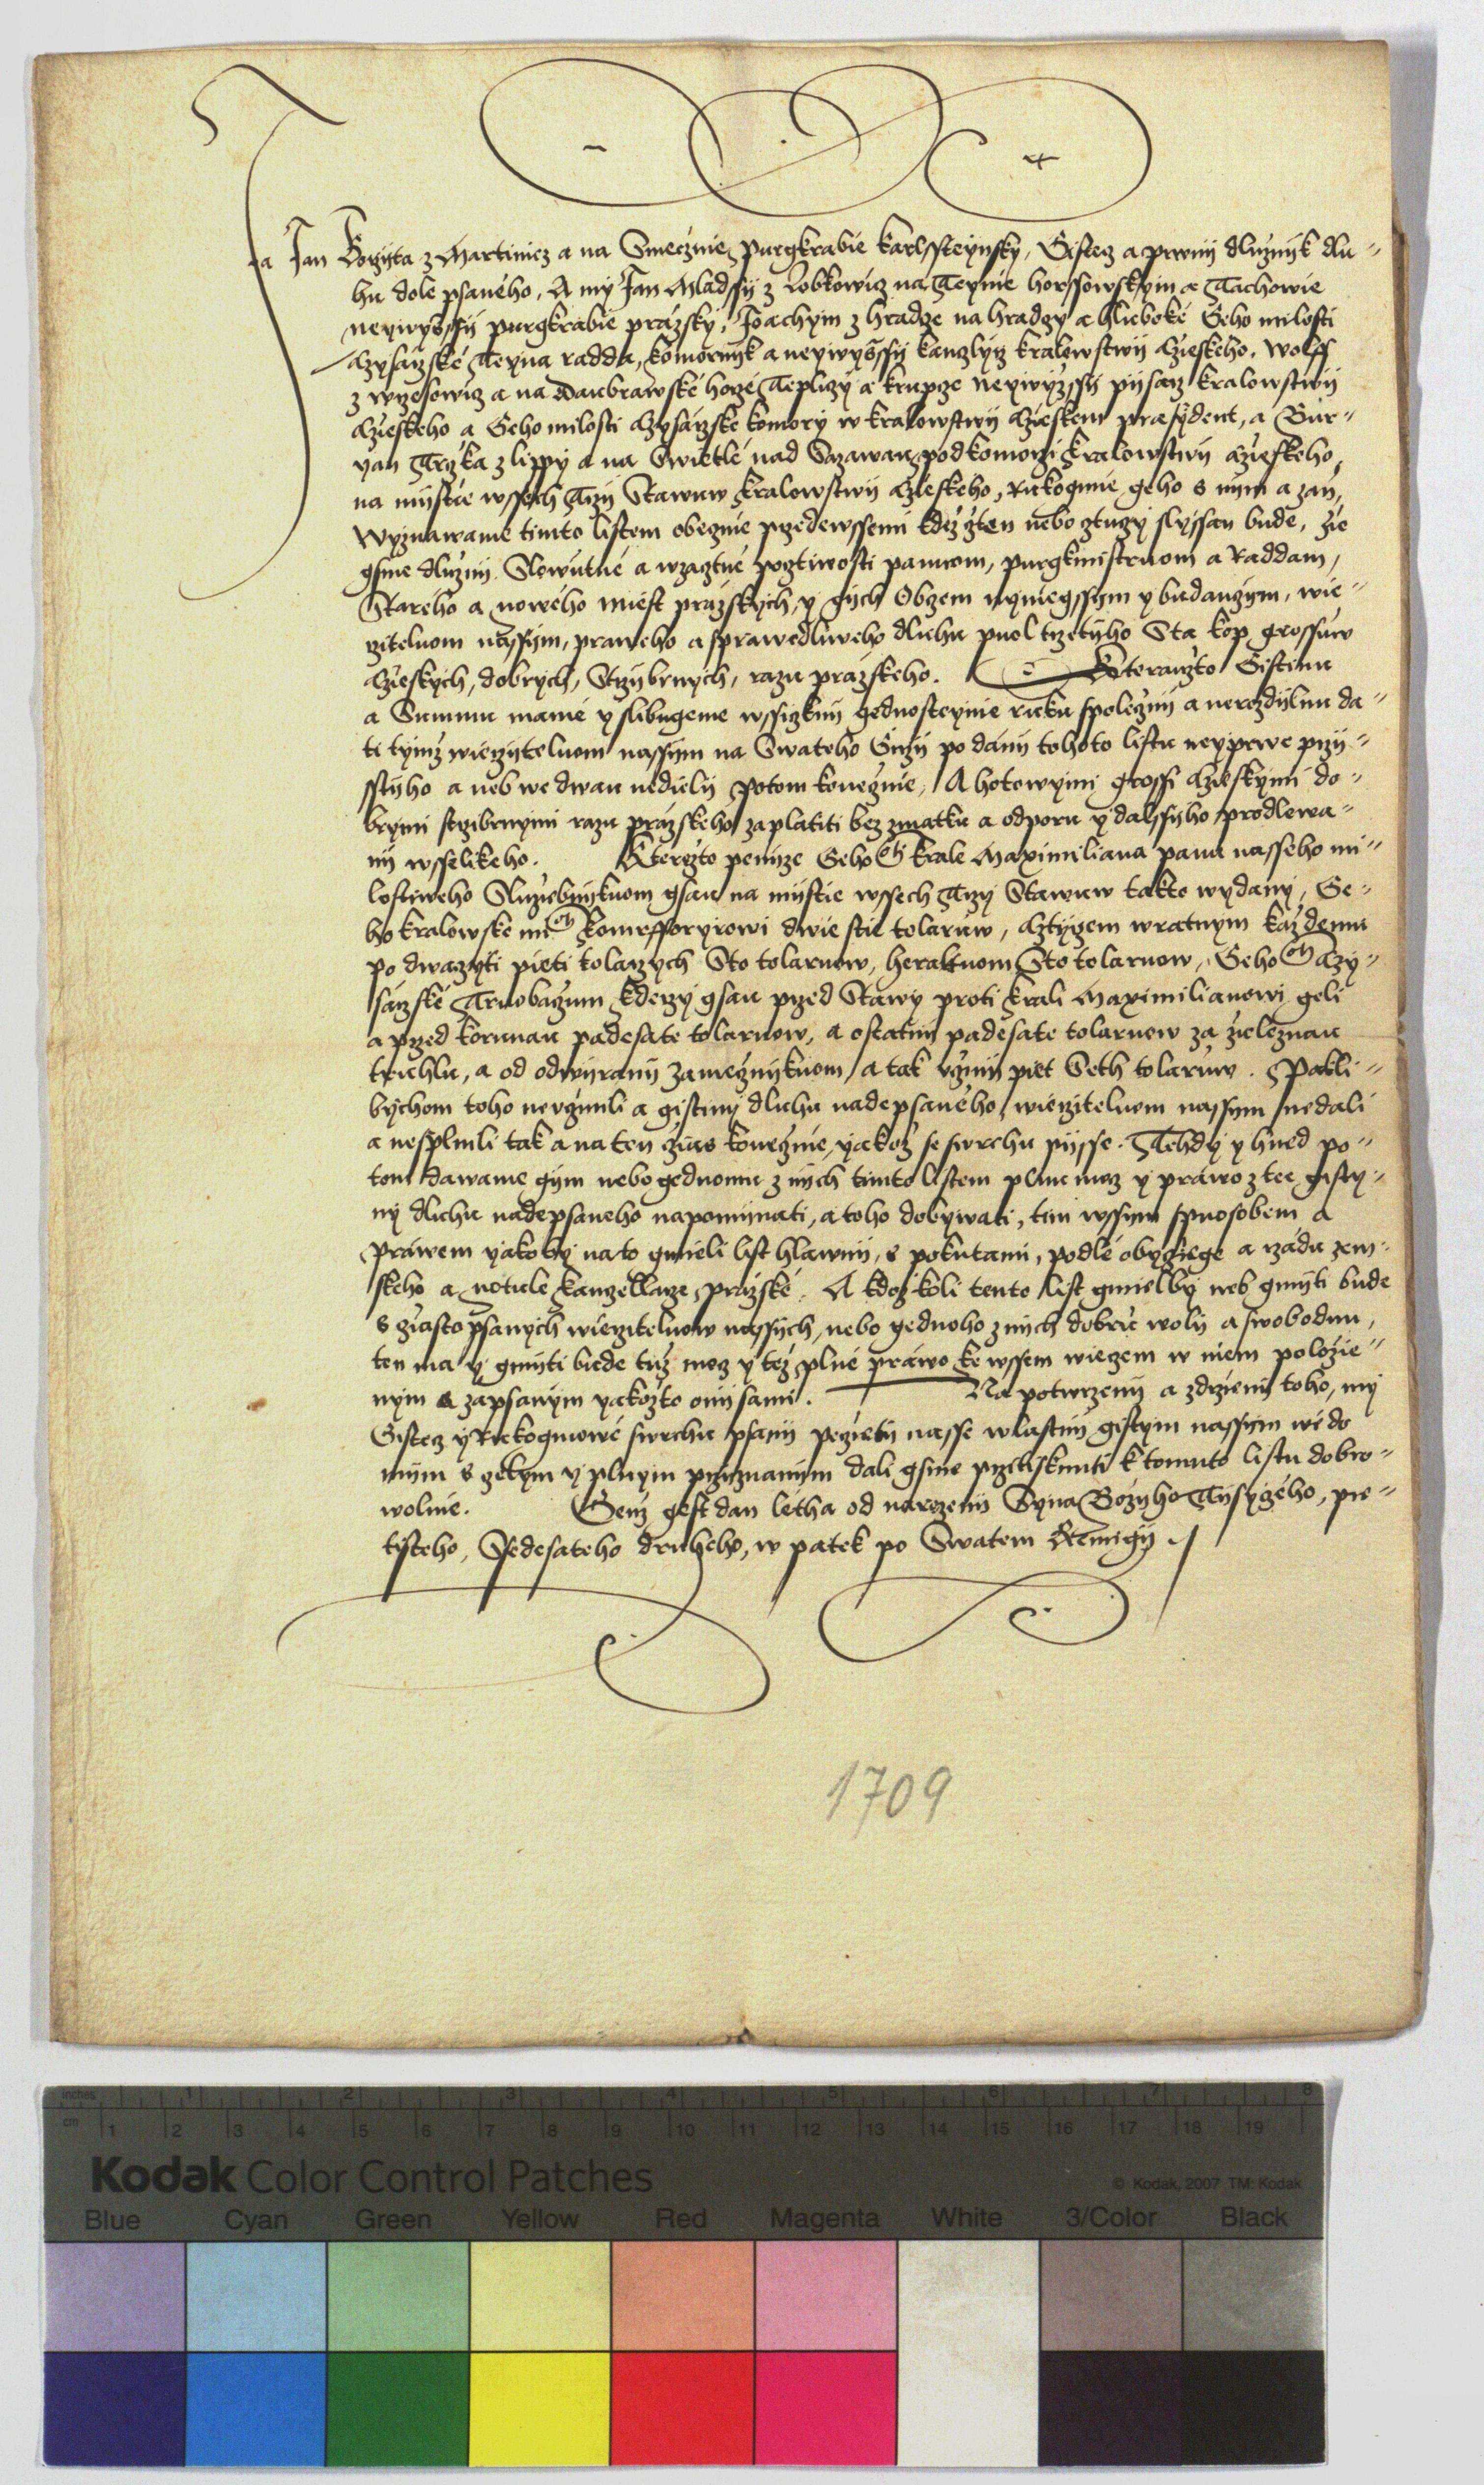 Ja Jan Borzyta z Martinicz a na Smecznie, Purgkrabie Karlssteynsky, Gistecz a prwnij dluznijk dlu=
hu dole psaneho, A my Jan Mladssij z Lobkowicz na Teynie horssowskym a Tachowie
neywyȯssij purgkrabie prazsky, Joachym z hradcze na hradczy a hluboke Geho milosti
Czysarzske Teyna radda, komornijk a neywyȯssij kanczlyrz kralowstwij Czieskeho. Wolff
z wrzesowicz a na Daubrawske horze, Tepliczy a krupcze neywyzssij pijsarz kralowstwij
Czieskeho a Geho milosti Czysarzske komory w kralowstwij Czieskem praesydent, a Bur=
yan Trczka z lippy a na Swietle nad Sazawau, podkomorzi kralowstwij Czieskeho,
na mijstie wssech Trzij Stawuw kralowstwij Czieskeho, Rukogmie geho s nijm a zan,
Wyznawame timto listem obecznie przedewssemi kdez cžten nebo cztuczy slyssan bude, zie
gsme dluzni Slowutne a wzactne pocztiwosti panuom, purgkmistruom a Raddam,
Stareho a noweho miest prazskych, y gich Obczem nyniegssym y budauczym, wie=
rziteluom nassijm, praweho a sprawedliweho dluhu puol trzetyho Sta kop grossuw
Czieskych, dobrych, Strzybrnych, razu prazskeho. Kterauzto Gistinu
a Summu mame y slibugeme wssiczknij gednosteynie ruku spoleczni a nerozdijlnu da=
ti tymz wierzyteluom nassym na Swateho Girzij po danij tohoto listu neyprwe przij=
sstijho a neb we dwau nedielij potom konecznie, A hotowymi grossi Czieskymi do=
brymi strzibrnymi razu prazskeho zaplatiti bez zmatku a odporu y dalssyho prodlewa=
nij wsselikeho. Kterezto penijze Geho Mti krale Maximiliana pana nasseho mi=
lostiweho Sluzebnijkuom gsau na mijstie wssech Trzy Stawuw takto wydany, Ge=
ho kralowske mti Komessoryrowi dwie stie tolaruw, Cztyrzem wratnym kazdemu
po dwaczyti pieti tolarzych Sto tolaruow, heraltuom Sto tolaruow, Geho Mti Czy=
sarzske Trubaczum kderzy gsau przed Stawy proti krali Maximilianowi geli
a przed korunau padesate tolaruow, a ostatnij padesate tolaruow za zieleznau
truhlu, a od odwijranij zamecznijkuom, a tak vcznij piet Seth tolaruw. Pakli=
bychom toho nevcznili a gistiny dluhu nadepsaneho, wierziteluom nassym nedali
a nesplnili tak a na ten czias konecznie, yakoz se swrchu pijsse. Tehdy y hned po=
tom dawame gym nebo gednomu z nich timto listem plnu mocz y prawo z tee gisty=
ny dluhu nadepsaneho napominati, a toho dobywati, tim wssym spuosobem a
prawem yakoby na to gmieli list hlawnij, s pokutami, podle obycziege a rzadu zem=
skeho a notule kanczellarze prazske. A kdoz koli tento list gmielby neb gmijti bude
s cziasto psanych wierziteluow nassych, nebo gednoho z nich dobru woly a swobodnu,
ten ma y gmijti bude tuz mocz y tez plne prawo ke wssem wieczem w niem polozie=
nym a zapsanym yakozto onij sami. Na potwrzenij a zdrzenij toho, my
Gistecz y Rukogmowe swrchu psanij peczieti nasse wlastnij gistym nassym wiedo
mijm s gekym y plnym prziznanym dali gsme przitisknuti k tomuto listu dobro=
wolnie. Genz gest dan letha od narozenij Syna Bozyho Tisyczeho, pie=
tisteho, Ssedesateho druheho, w patek po Swatem Remigij
1709
inches 1 2 3 4 5 6 7 8
cm 1 2 3 4 5 6 7 8 9 10 11 12 13 14 15 16 17 18 19
Kodak Color Control Patches © Kodak, 2007 TM: Kodak
Blue Cyan Green Yellow Red Magenta White 3/Color Black